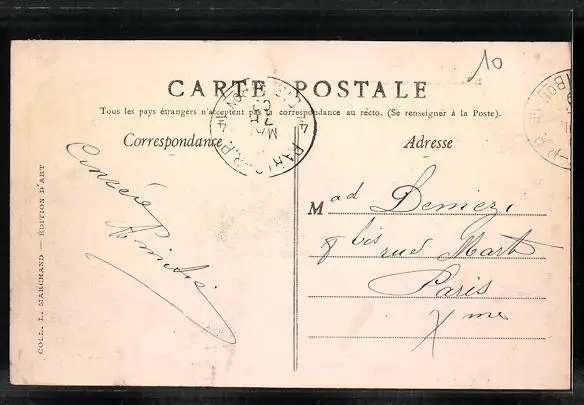 10
CARTE POSTALE
Tous les pays étrangers n'acceptent pas la correspondance au récto. (Se renseigner à la Poste).
Correspondance
Adresse
COLL. L. MARCHAND — ÉDITION D'ART
Sincère
Amitié
Mad Demiezi
8 bis rue Mart
Paris
Xme
PARIS